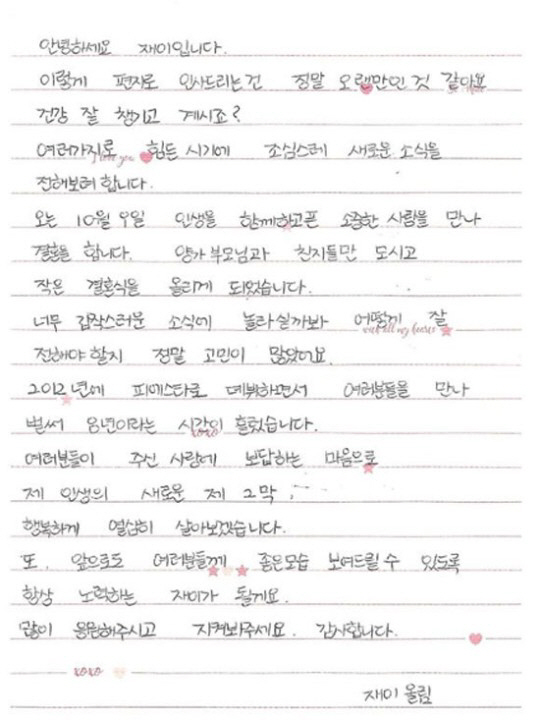 안녕하세요 재이입니다.
이렇게 편지로 인사드리는건 정말 오랜만인 것 같아요
건강 잘 챙기고 계시죠?
여러가지로 힘든 시기에 조심스레 새로운 소식을
I love you
전해보려 합니다.
오는 10월 9일 인생을 함께하고픈 소중한 사람을 만나
결혼을 합니다. 양가 부모님과 친지들만 모시고
작은 결혼식을 올리게 되었습니다.
너무 갑작스러운 소식에 놀라실까봐 어떻게 잘
with all my hearts
전해야 할지 정말 고민이 많았어요.
2012년에 피에스타로 데뷔하면서 여러분들을 만나
벌써 8년이라는 시간이 흘렀습니다.
xoxo
여러분들이 주신 사랑에 보답하는 마음으로
제 인생의 새로운 제 2막
행복하게 열심히 살아보겠습니다.
또, 앞으로도 여러분들께 좋은모습 보여드릴 수 있도록
항상 노력하는 재이가 될게요.
많이 응원해주시고 지켜봐주세요. 감사합니다.
xoxo
재이 올림